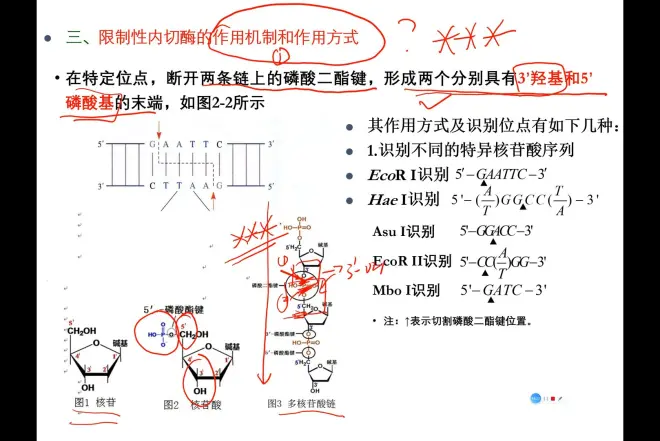 三、限制性内切酶的作用机制和作用方式
①
?
在特定位点，断开两条链上的磷酸二酯键，形成两个分别具有3'羟基和5'
磷酸基的末端，如图2-2所示
其作用方式及识别位点有如下几种：
1.识别不同的特异核苷酸序列
EcoR I识别 5'-GAATTC-3'
Hae I识别 5'-(A/T)GGCC(T/A)-3'
Asu I识别 5'-GGACC-3'
EcoR II识别 5'-CC(A/T)GG-3'
Mbo I识别 5'-GATC-3'
注：↑表示切割磷酸二酯键位置。
5' G A A T T C 3'
3' C T T A A G 5'
5'磷酸酯键
CH₂OH
碱基
OH
图1 核苷
HO-P=O
CH₂OH
碱基
OH
图2 核苷酸
HO-P=O
5'H₂C
碱基
磷酸二酯键
碱基
3'-磷酸酯键
HO-P=O
5'-磷酸酯键
5'H₂C
碱基
OH
图3 多核苷酸链